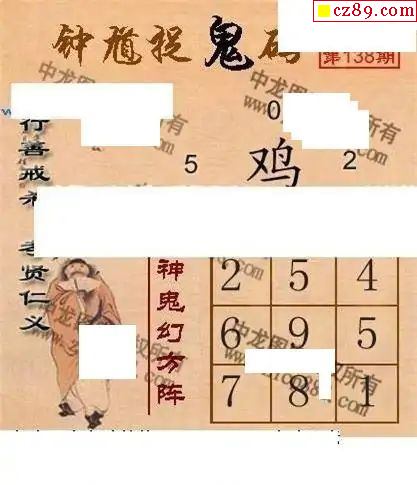 cz89.com
钟馗捉鬼码
第138期
0
5 鸡 2
行善戒
孝贤仁义
神鬼幻方阵
2 5 4
6 9 5
7 8 1